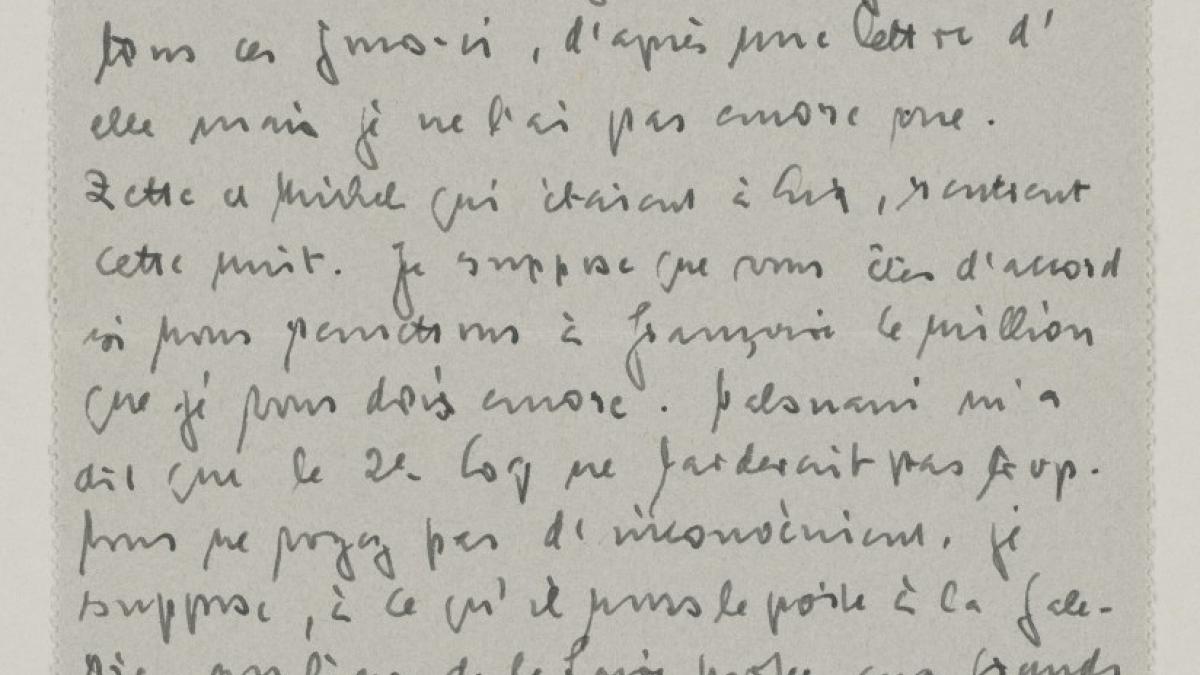 tous ces jours-ci, d'après une lettre d'
elle mais je ne l'ai pas encore vue.
Zette et Michel qui étaient à, rentrent
cette nuit. Je suppose que vous êtes d'accord
si nous à François le million
que je vous dois encore. m'a
dit que le 2e Coq ne tarderait pas trop.
Vous ne voyez pas d'inconvénient, je
suppose, à ce qu'il vous le porte à la Gale-
de la